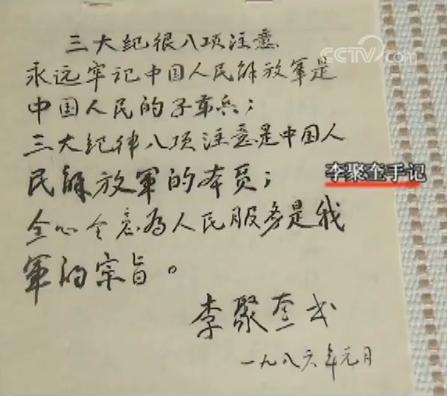 CCTV.com
三大纪律八项注意
永远牢记中国人民解放軍是
中国人民的子弟兵；
三大纪律八项注意是中国人
民解放軍的本质；
全心全意為人民服务是我
軍的宗旨。
李聚奎书
一九八六年元月
李聚奎手记